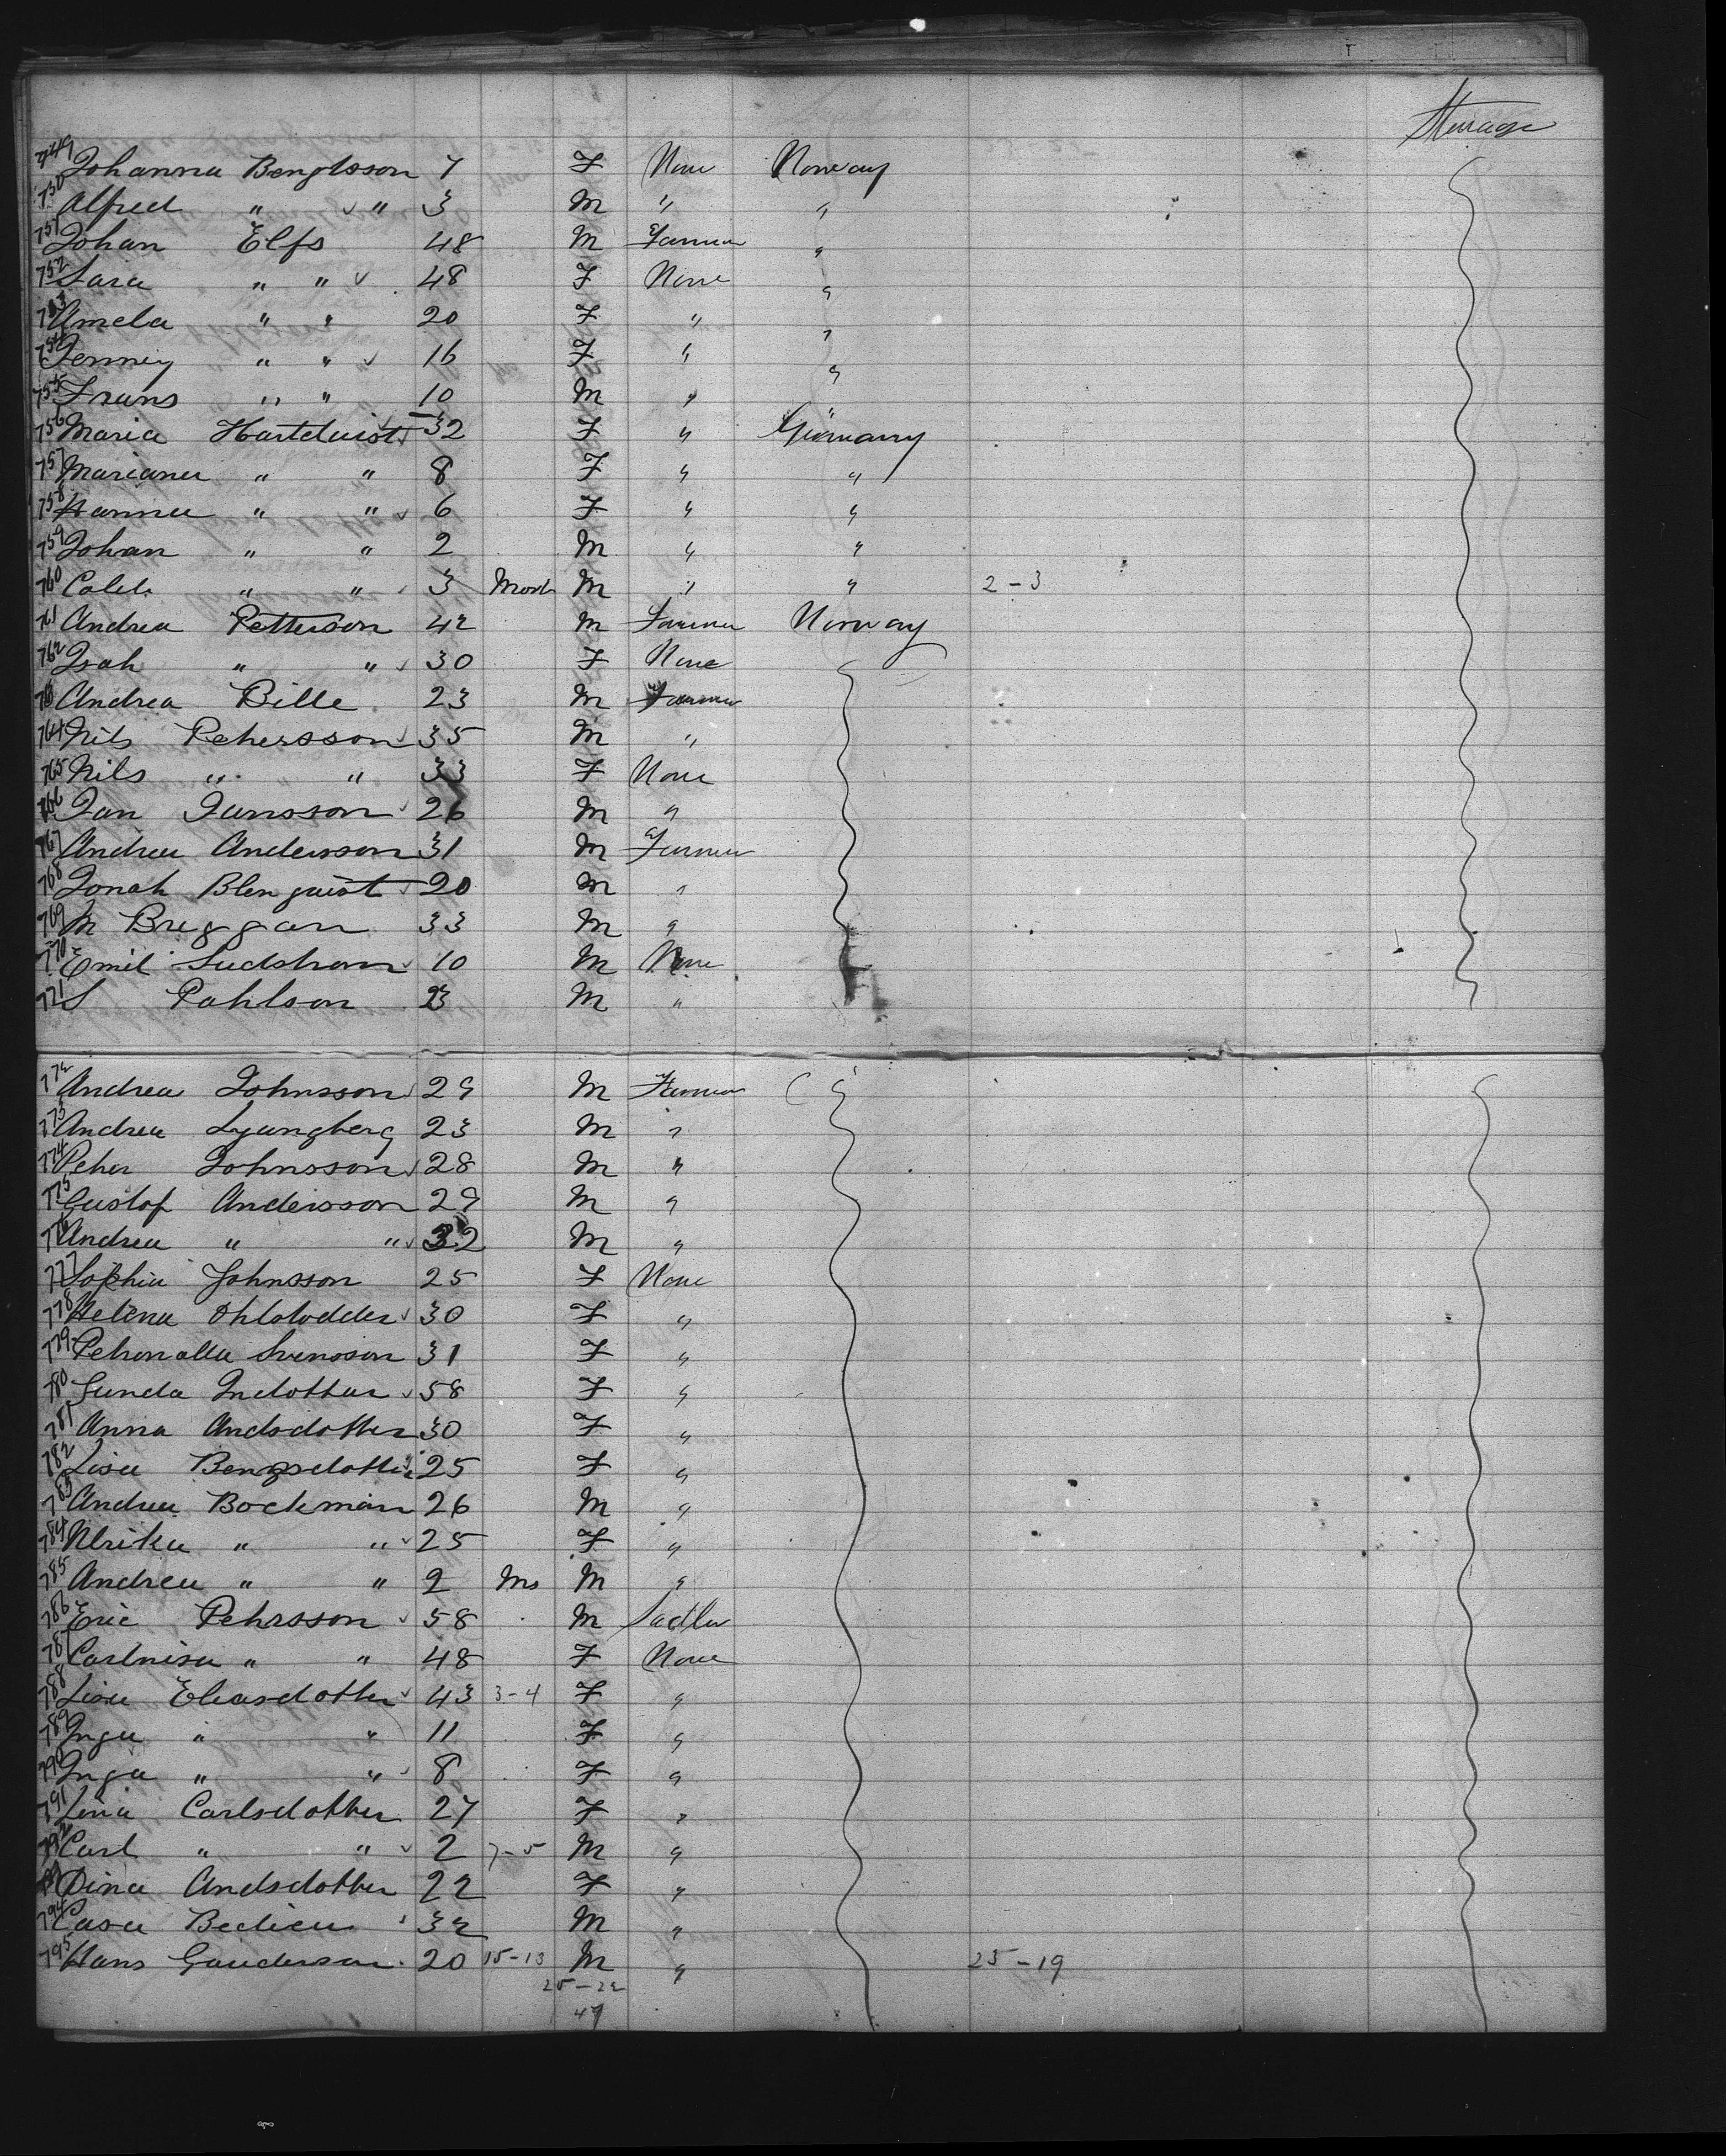 Steerage
749 Johanna Bengtsson 7 F None Norway
750 Alfred " " 3 M " "
751 Johan Elfs 48 M Farmer "
752 Sara " " 48 F None "
753 Amela " " 20 F " "
754 Jenney " " 16 F " "
755 Frans " " 10 M "
756 Maria Hartquist 32 F " Germany
757 Mariana " " 8 F " "
758 Hanna " " 6 F " "
759 Johan " " 2 M " "
760 Caleb " " 3 Month M " " 2-3
761 Andrea Petterson 42 M Farmer Norway
762 Isah " " 30 F None
763 Andrea Bille 23 M Farmer
764 Nils Pehersson 35 M "
765 Nils " " 33 F None
766 Jan Jansson 26 M "
767 Andrea Andersson 31 M Farmer
768 Jonah Blenquist 20 M "
769 M Breggan 33 M "
770 Emil Sudstrom 10 M None
771 S Pahlson 23 M "
772 Andrea Johnsson 29 M Farmer
773 Andrea Lyungberg 23 M "
774 Peher Johnsson 28 M "
775 Gustof Andersson 29 M "
776 Andrea " " 32 M "
777 Sophia Johnsson 25 F None
778 Helena 30 F "
779 Petronalla Svensson 31 F "
780 Gunda Indottar 58 F "
781 Anna Andsdotter 30 F "
782 Lisa Bengsdotter 25 F "
783 Andrea Bockman 26 M "
784 Ulrika " " 25 F "
785 Andrea " " 2 Ms M "
786 Eric Pehrsson 58 M Sadler
787 Carlnisa " " 48 F None
788 Lisa Eleasdotter 43 3-4 F "
789 Inga " " 11 F "
790 Inga " " 8 F "
791 Lina Carlsdotter 27 F "
792 Carl " " 2 7-5 M "
793 Dina Andsdotter 22 F "
794 Casa Bedien 32 M "
795 Hans Gunderson 20 15-13 M " 25-19
25-22
47